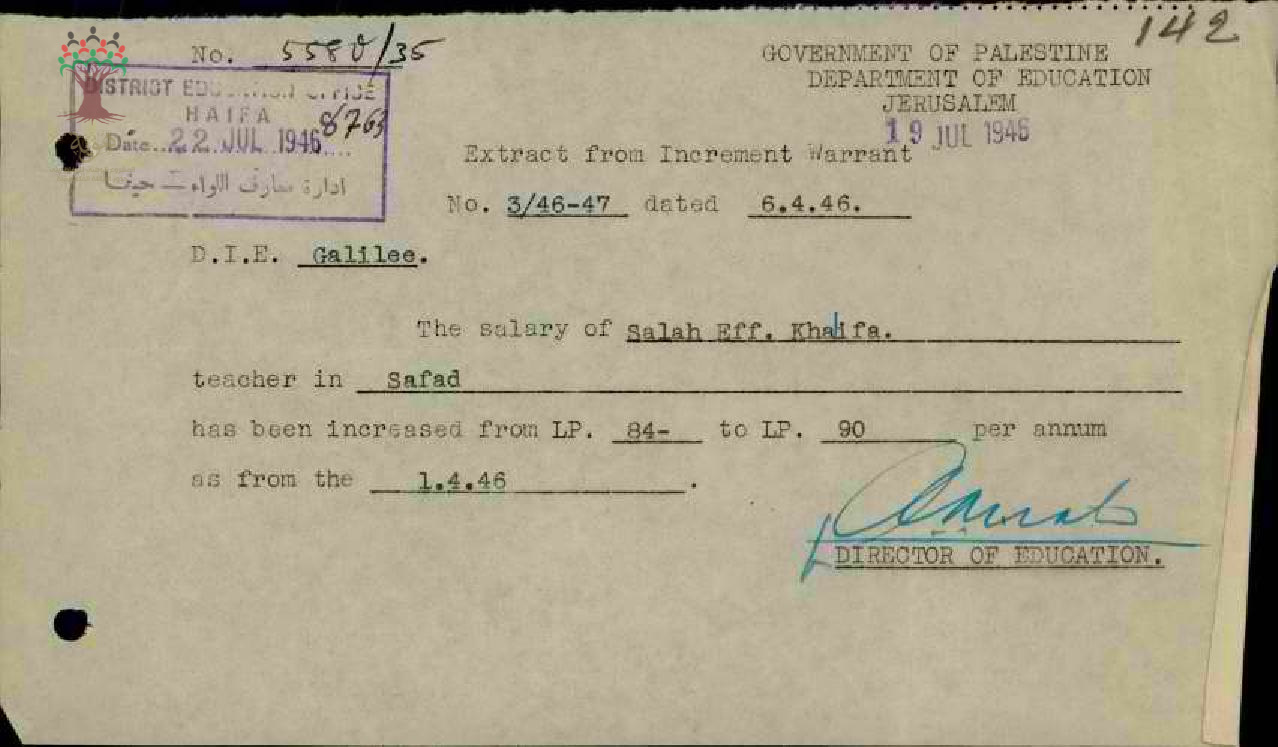 142
No. 5580/35
GOVERNMENT OF PALESTINE
DEPARTMENT OF EDUCATION
JERUSALEM
19 JUL 1946
DISTRICT EDUCATION OFFICE
HAIFA
8763
Date..22 JUL 1946.....
ادارة معارف اللواء — حيفا
Extract from Increment Warrant
No. 3/46-47 dated 6.4.46.
D.I.E. Galilee.
The salary of Salah Eff. Khalifa.
teacher in Safad
has been increased from LP. 84- to LP. 90 per annum
as from the 1.4.46 .
DIRECTOR OF EDUCATION.